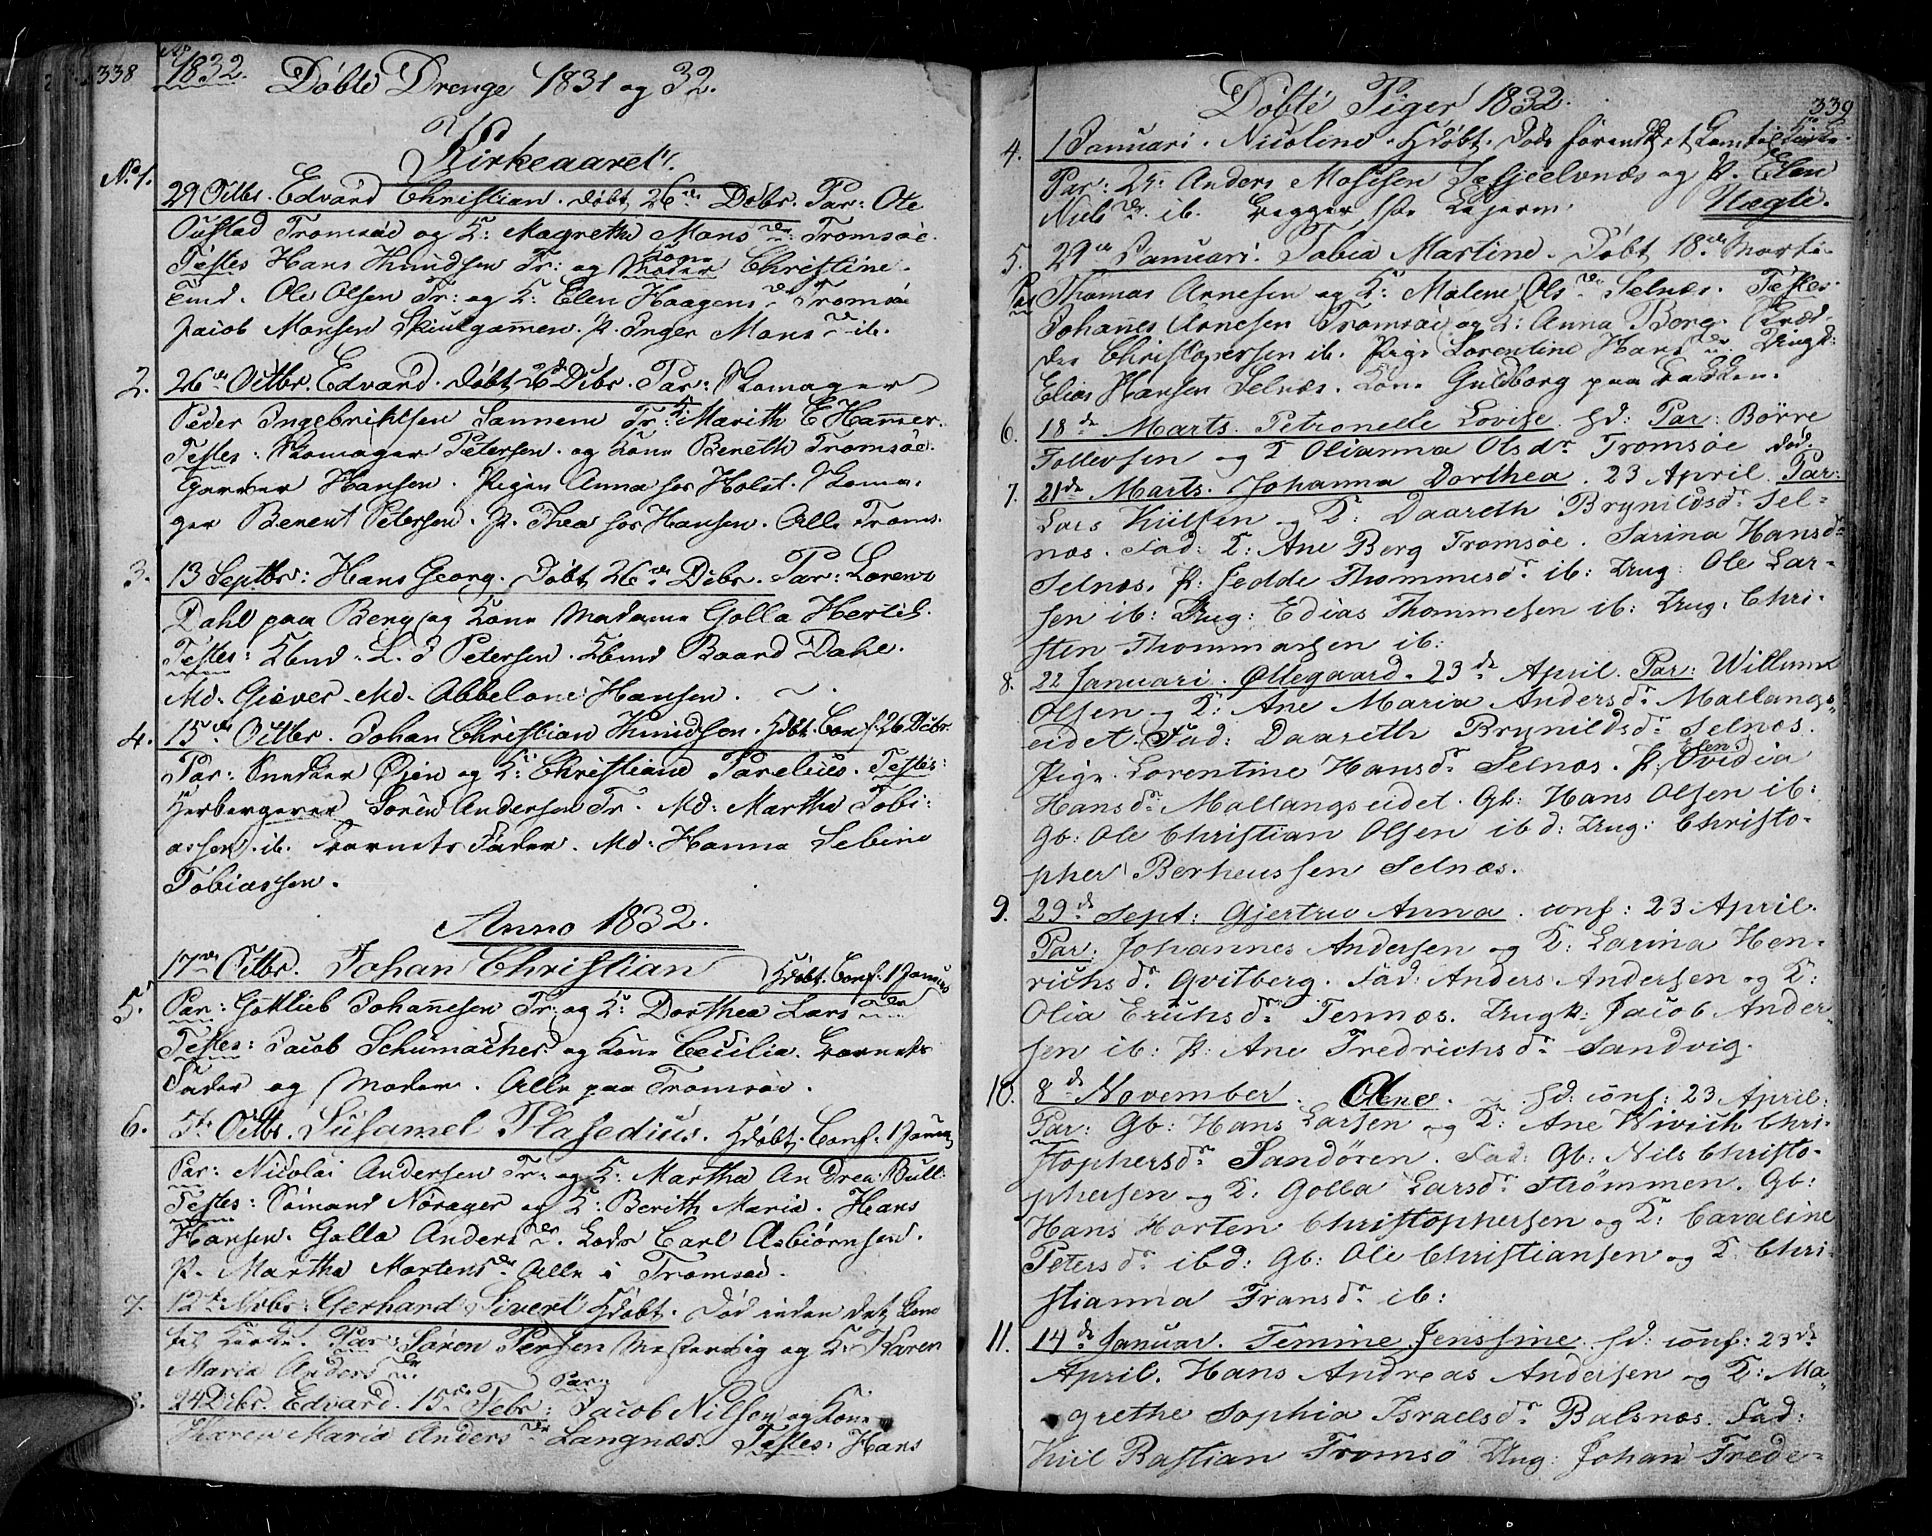 338
Ao 1832. Döbte Drenge 1831 og 32.
Kirkeaaret.
No. 1. 29 Octbr. Edvard Christian. Döbt 26de Debr. Par: Ole
Oustad Tromsöe og K: Magrethe Mons dr: Tromsöe.
Testes Hans Knudsen Tr: og Kone Christine.
Ole Olsen Tr: og K: Elen Haagens dr Tromsöe
Jacob Monsen Skiulgammen. P. Inger Mons dr ib.
2. 26de Octbr. Edvard. Döbt 26 Debr. Par: Skomager
Peder Ingebrigtsen Sannem Tr: K: Marith E Hammer.
Testes: Skomager Petersen. og Kone Bereth Tromsöe.
Garver Hansen. Pigen Anna hos Holst. Skoma-
ger Benent Petersen. P. Thea hos Hansen. Alle Troms.
3. 13 Septbr: Hans Georg. Döbt 26de Debr. Par: Lorens
Dahl paa Berg og Kone Madame Golla Hertel.
Testes: Kbmd. L. J Petersen. Kbmd Baard Dahl.
Md. Giæver. Md. Abbelone Hansen.
4. 15de Octbr. Johan Christian Knudsen. Hdöbt. Conf. 26 Debr.
Par: Snedker Öjen og K: Christiane Parelius. Testes:
Herbergerer Sören Andersen Tr. Md: Martha Tobi-
assen. ib. Barnets Fader. Md: Hanna Sebine
Tobiassen.
Anno 1832.
17de Octbr. Johan Christian Hdöbt. Conf: 1 Januar
5. Par: Gotlieb Johannesen Tr: og K: Dorthea Lars dr
Testes: Jacob Schumacher og Kone Cecilia. Barnets
Fader og Moder. Alle paa Tromsöe.
6. 5te Octbr. Susamel Plasedius. Hdöbt. Conf: 1 Januar
Par: Nicolai Andersen Tr: og K: Martha Andrea Bull.
Testes: Sömand Norager og K: Berith Maria. Hans
Hansen. Golla Anders dr. Lods Carl Asbiörnsen.
P. Martha Mortens dr Alle i Tromsöe.
7. 12te Novbr: Gerhard Sivert Hdöbt. Död inden det kom
til Kirke. Par: Sören Persen Mestervig og K: Karen
Maria Anders dr.
8. 24 Debr. Edvard. 15de Febr: Par: Jacob Nilsen og Kone
Karen Maria Anders dr Langnæs. Testes: Hans
339
Döbte Piger 1832.
4. 1 Januari. Nicoline. Hdöbt. Döde förend det kom til Kirke.
Par: Anders Mosesen og P. Elen
Niels dr. ib. Uægte.
5. 29de Januari. Tobia Martine. Döbt 18de Marts.
Par Thomas Arnesen og K: Malene Ols dr Selnæs. Testes:
Johannes Arnesen Tromsöe og K: Anna Berg.
Christopersen ib. Pige Lorentine Hans dr. Ungk:
Elias Hansen Selnæs. Kone Guldborg paa Bakken.
6. 18de Marts. Petronelle Lovise. hd: Par: Börre
Tollevsen og K Olianna Olsdr Tromsöe död.
7. 21de Marts. Johanna Dorthea. 23 April. Par:
Lars Kulsen og K: Daareth Brynildsdr Sel-
næs. Fad: K: Ane Berg Tromsöe. Sarina Hansdr
Selnæs. P: Sedde Thommesdr ib: Ung: Ole Lar-
sen ib: Ung: Edias Thommesen ib: Ung: Chri-
sten Thommassen ib:
8. 22 Januari. Ollegaard. 23de April. Par: Willum
Olsen og K: Ane Maria Andersdr Mallangs-
eidet. Fad: Daareth Brynildsdr Selnæs.
Pige Lorentine Hansdr Selnæs. P: Elen Ovidia
Hansdr Mallangseidet. Gk: Hans Olsen ib:
Gb: Ole Christian Olsen ibd: Ung: Christo-
pher Berheussen Selnæs.
9. 29de Sept: Gjertru Anna. conf: 23 April.
Par: Johannes Andersen og K: Larina Hen-
richsdr Qvitberg. Fad: Anders Andersen og K:
Olia Erichsdr Tennæs. Ungk: Jacob Ander-
sen ib: P: Ane Fredrichsdr Sandvig.
10. 8de November. Oline. hd: conf: 23 April:
Par: Gb: Hans Larsen og K: Ane Wivich Chri-
stophersdr Sandören. Fad: Gb: Nils Christo-
phersen og K: Golla Larsdr Strömmen. Gb:
Hans Morten Christophersen og K: Cavaline
Petersdr ibd: Gb: Ole Christiansen og K Chri-
stianna Fransdr ib:
11. 14de Januar. Temine Jenssine. hd: conf: 23de
April. Hans Andreas Andersen og K: Ma-
grethe Sophia Israelsdr Balsnæs. Fad:
Kiil Bastian Tromsö Ung: Johan Frede-